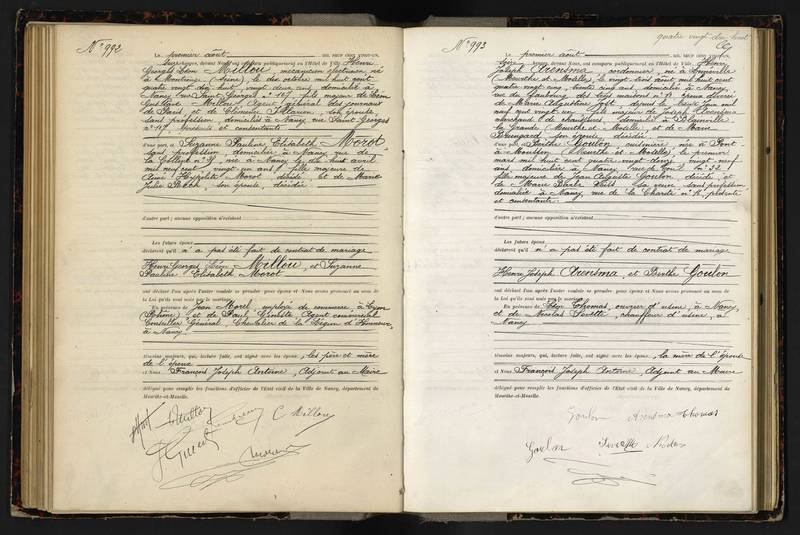 N° 992
Le premier août mil neuf cent vingt-un,
heures, devant Nous, ont comparu publiquement en l'Hôtel de Ville, Henri
Georges Léon Millou, mécanicien
à Montieux (Isère), le dix octobre mil huit cent
quatre vingt dix huit, vingt deux ans, domicilié à
Nancy, rue Saint Georges n° 47, fils majeur de Léon
Gustave Millou, agent général des journaux
de Paris, et de Clémence, son épouse,
sans profession, domiciliés à Nancy, rue Saint Georges
n° 47, présents et consentants
d'une part; Suzanne Pauline Elisabeth Morot
sans profession, domiciliée à Nancy, rue de
née à Nancy le dix huit avril
mil neuf cent, vingt un ans, fille majeure de
Aimé Hippolyte Morot, décédé, et de Marie
Julie, son épouse, décédée
d'autre part; aucune opposition n'existant
Les futurs époux
déclarent qu'il n'a pas été fait de contrat de mariage
Henri Georges Léon Millou, et Suzanne
Pauline Elisabeth Morot
ont déclaré l'un après l'autre vouloir se prendre pour époux et Nous avons prononcé au nom de
la Loi qu'ils sont unis par le mariage
En présence de Jean Morel, employé de commerce, à Lyon
(Rhône) et de Paul, Agent commercial
Conseiller Général, Chevalier de la Légion d'Honneur,
à Nancy
témoins majeurs, qui, lecture faite, ont signé avec les époux, les père et mère
de l'époux
et Nous François Joseph Antoine, Adjoint au Maire
délégué pour remplir les fonctions d'officier de l'État civil de la Ville de Nancy, département de
Meurthe-et-Moselle.
C Millou
quatre vingt dix huit
N° 993
Le premier août mil neuf cent vingt-un,
heures, devant Nous, ont comparu publiquement en l'Hôtel de Ville, Henry
Joseph Arensma, cordonnier, né à
(Meurthe et Moselle), le vingt août mil huit cent
quatre vingt cinq, trente cinq ans, domicilié à Nancy,
rue du Faubourg des trois maisons n°, veuf
de Marie Augustine, depuis le trente juin mil
neuf cent vingt un, fils majeur de Joseph Arensma
marchand de chaussures, domicilié à Blainville
la Grande, Meurthe et Moselle, et de Marie
son épouse, décédée
d'une part; Berthe Goulon, cuisinière, née à Pont
à Mousson (Meurthe et Moselle), le premier
mars mil huit cent quatre vingt douze, vingt neuf
ans, domiciliée à Nancy, rue de Toul
fille majeure de Jean Auguste Goulon, décédé, et
de Marie, sa veuve, sans profession
domiciliée à Nancy, rue de la Charité n°, présente
et consentante
d'autre part; aucune opposition n'existant
Les futurs époux
déclarent qu'il n'a pas été fait de contrat de mariage
Henry Joseph Arensma, et Berthe Goulon
ont déclaré l'un après l'autre vouloir se prendre pour époux et Nous avons prononcé au nom de
la Loi qu'ils sont unis par le mariage
En présence de Thomas, ouvrier d'usine, à Nancy
et de Nicolas, chauffeur d'usine, à
Nancy
témoins majeurs, qui, lecture faite, ont signé avec les époux, la mère de l'épouse
et Nous François Joseph Antoine, Adjoint au Maire
délégué pour remplir les fonctions d'officier de l'État civil de la Ville de Nancy, département de
Meurthe-et-Moselle.
Goulon Arensma Thomas
Goulon